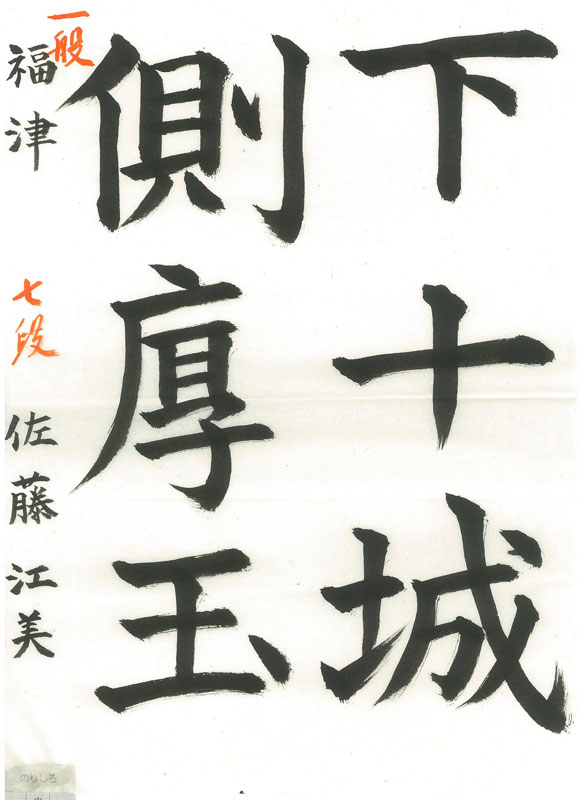 下十城
側厚玉
一般
福津 七段 佐藤江美
のりしろ